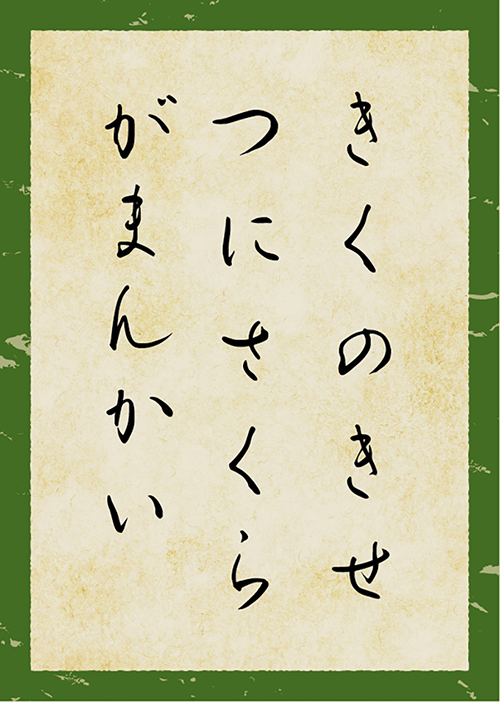 きくのきせ
つにさくら
がまんかい